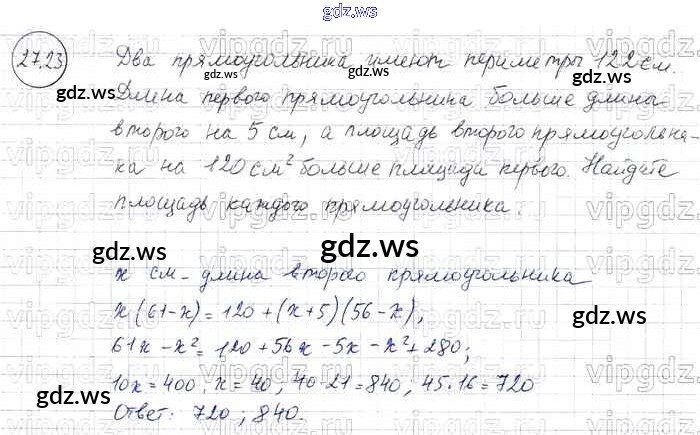 gdz.ws
27.23
Два прямоугольника имеют периметры 122 см.
gdz.ws
gdz.ws
Длина первого прямоугольника больше длины
второго на 5 см, а площадь второго прямоугольни-
ка на 120 см² больше площади первого. Найдите
gdz.ws
gdz.ws
площадь каждого прямоугольника.
gdz.ws
gdz.ws
x см - длина второго прямоугольника
x(61-x)=120+(x+5)(56-x);
61x-x²=120+56x-5x-x²+280;
10x=400; x=40; 40·21=840; 45·16=720
gdz.ws
gdz.ws
Ответ: 720; 840.
gdz.ws